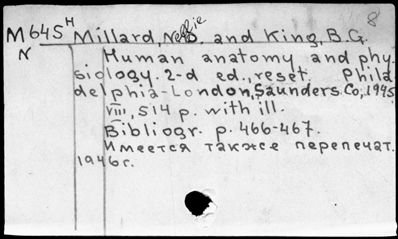 8
M645 H Millard, Nellie D. and King, B.G.
N Human anatomy and phy-
siology. 2-d ed., reset. Phila-
delphia-London, Saunders Co, 1945
VIII, 514 p. with ill.
Bibliogr. p. 466-467.
Имеется также перепечат.
1946г.